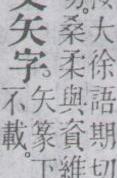 大徐語期切
桑柔與資維
矢字。矢篆下
不載。